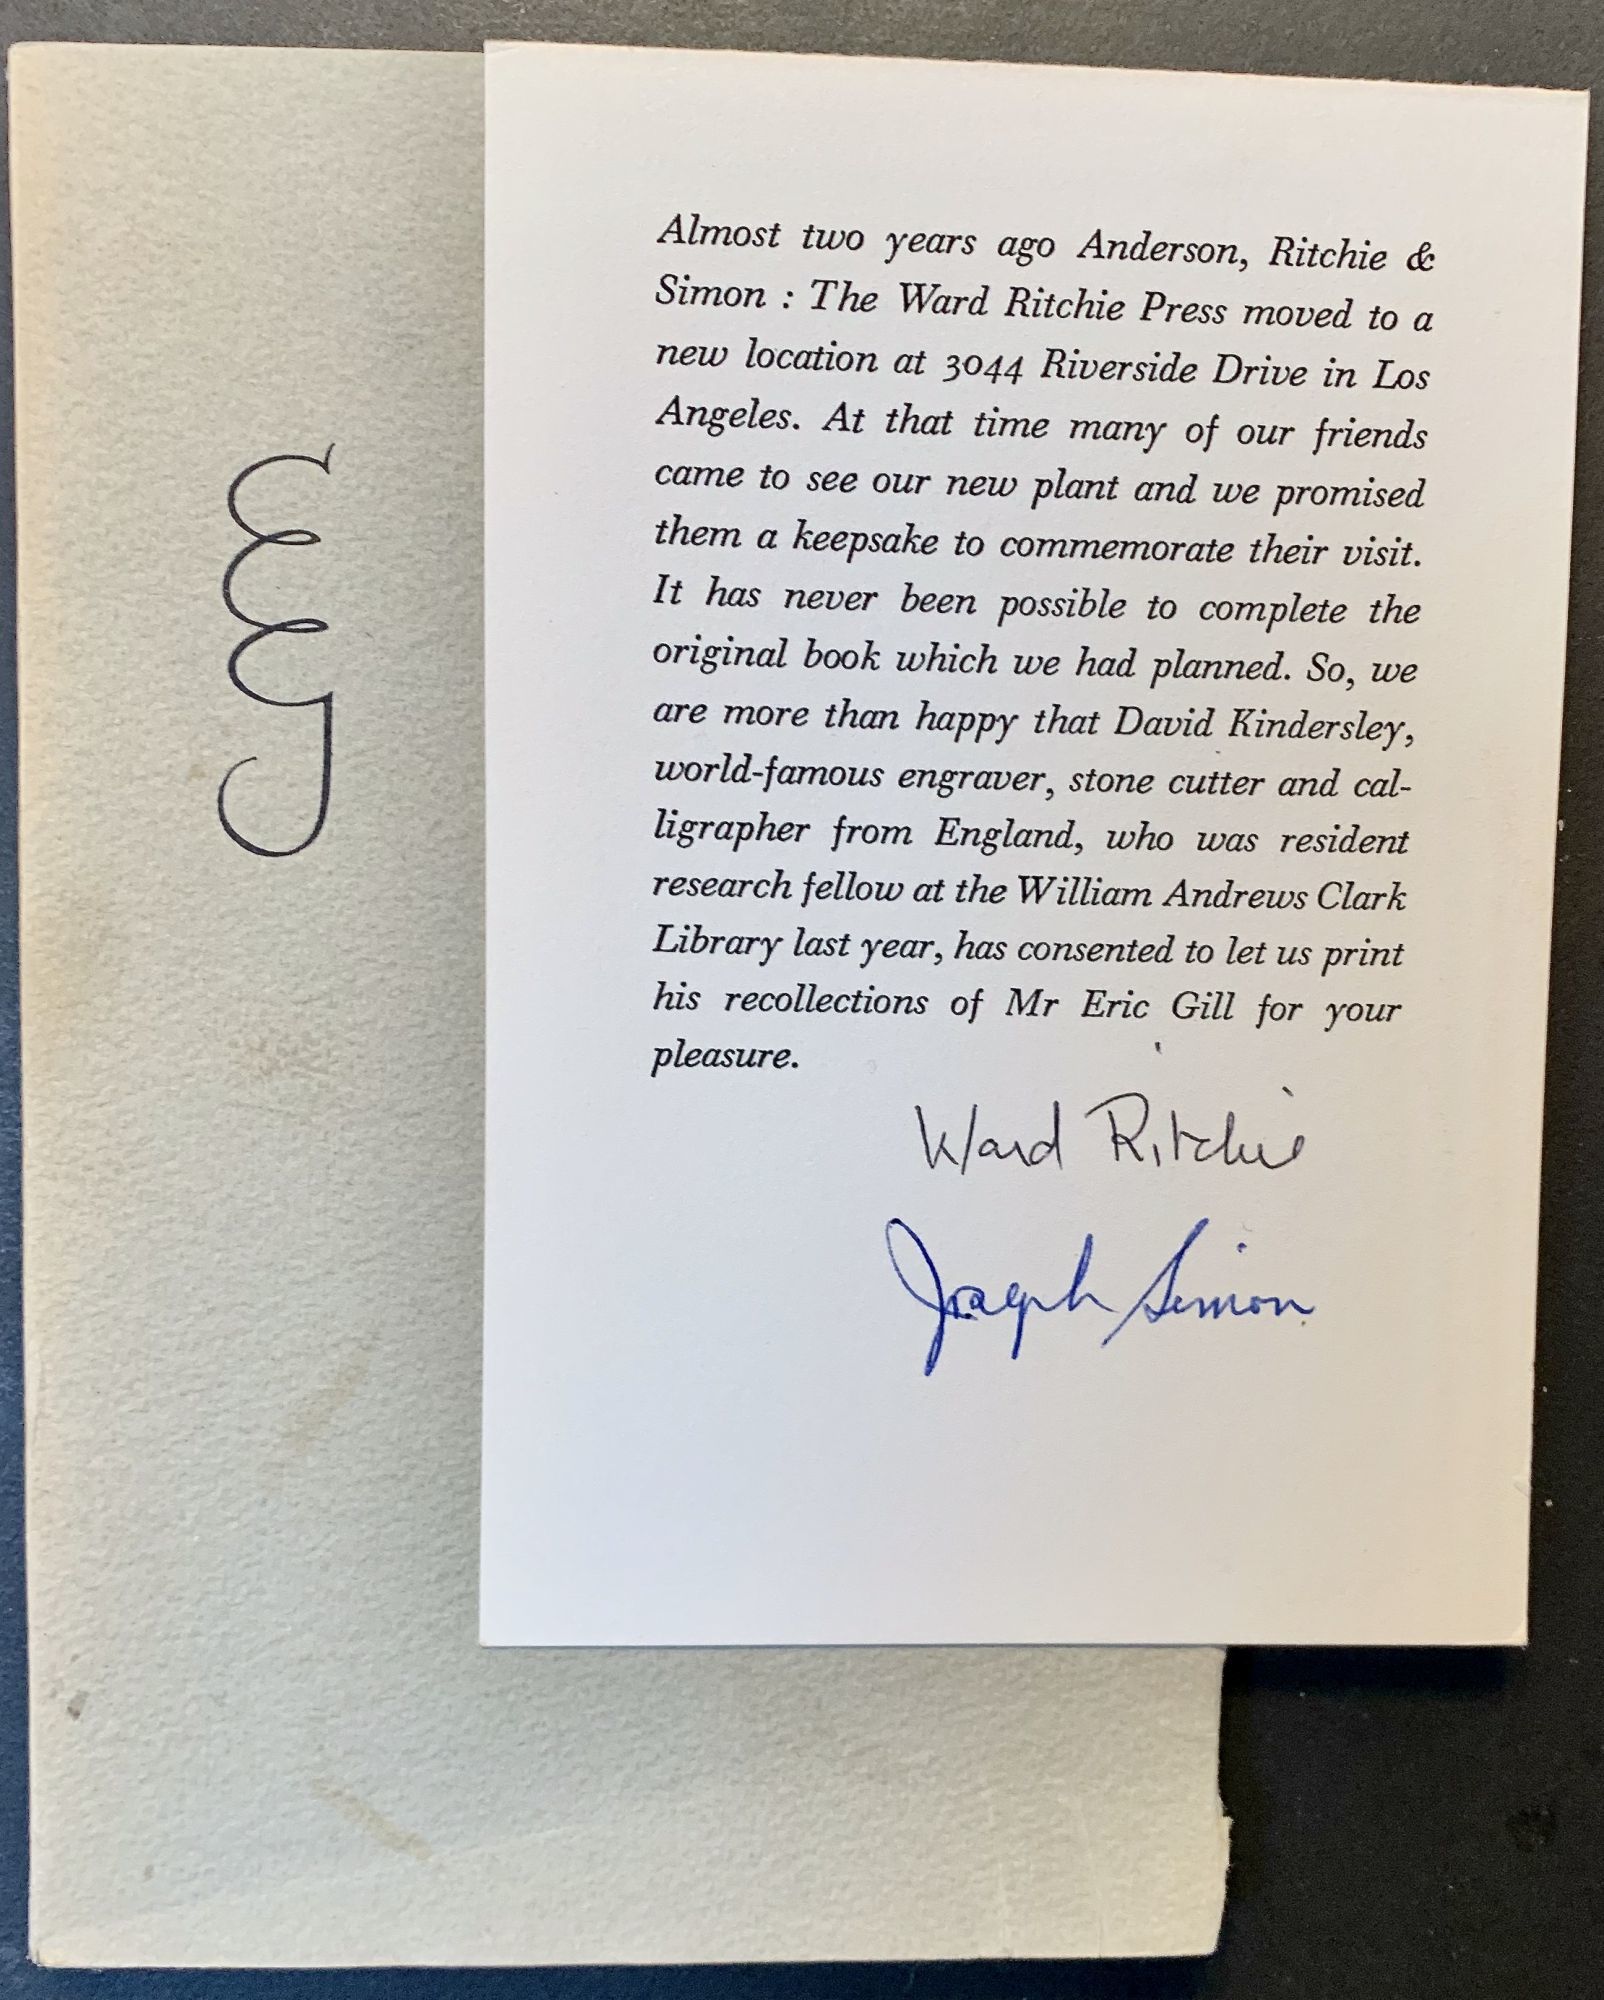 Almost two years ago Anderson, Ritchie &
Simon : The Ward Ritchie Press moved to a
new location at 3044 Riverside Drive in Los
Angeles. At that time many of our friends
came to see our new plant and we promised
them a keepsake to commemorate their visit.
It has never been possible to complete the
original book which we had planned. So, we
are more than happy that David Kindersley,
world-famous engraver, stone cutter and cal-
ligrapher from England, who was resident
research fellow at the William Andrews Clark
Library last year, has consented to let us print
his recollections of Mr Eric Gill for your
pleasure.
Ward Ritchie
Joseph Simon